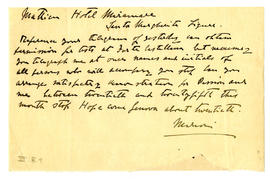 Hotel Miramare
Santa Margherita Ligure.
Reference your telegram of yesterday can obtain
permission for tests at but necessary
you telegraph me at once names and initials of
all persons who will accompany you stop Can you
arrange satisfactory demonstration for and
me between twentieth and twentyfifth this
month stop Hope come Genova about twentieth.
Marconi